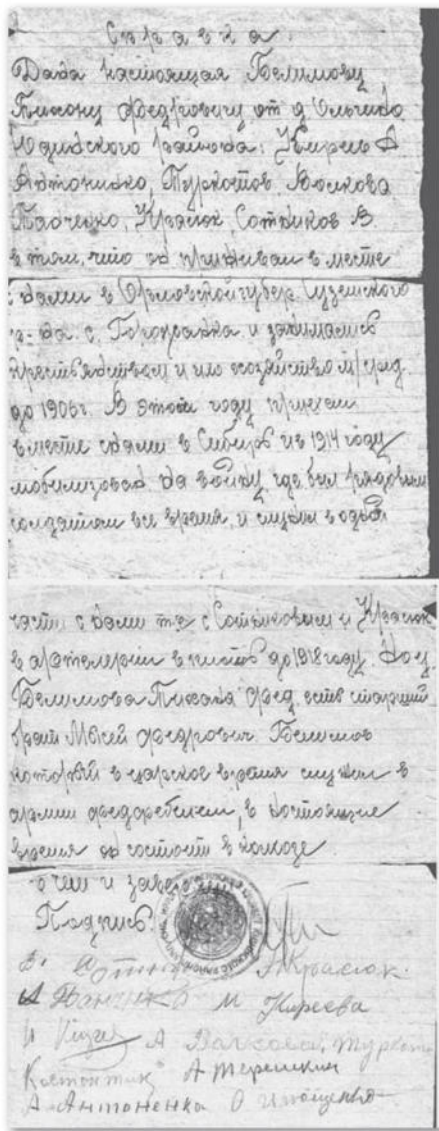 Справка.
Дана настоящая Белимову
Тихону Федровичу от д Ольгино
Юдинского района: Киреев А
Антонинко, Туркотов. Волкова
Панченко, Красюк, Сотников В.
в том, что он приживал в месте
с нами в Орловской губер. Сузенского
р-на с. и занимались
крестьянством и его хозяйство м/серед.
до 1906г. В этом году приехали
вместе снами в Сибирь и в 1914 году
мобилизован на войну где был рядовым
солдатам все время, и служил в одной
части с нами т-е с Сотниковым и Красюк
в артелерии в плоть до 1918 году. Но у
Белимова Тихона Фед. есть старший
брат Федрович Белимов
который в царское время служил в
армии, в настоящие
время он состоит в колхозе
о чем и
Подпись:
Красюк.
А Панченко М Киреева
А Валкова.
А Терешкин
А Антоненко О